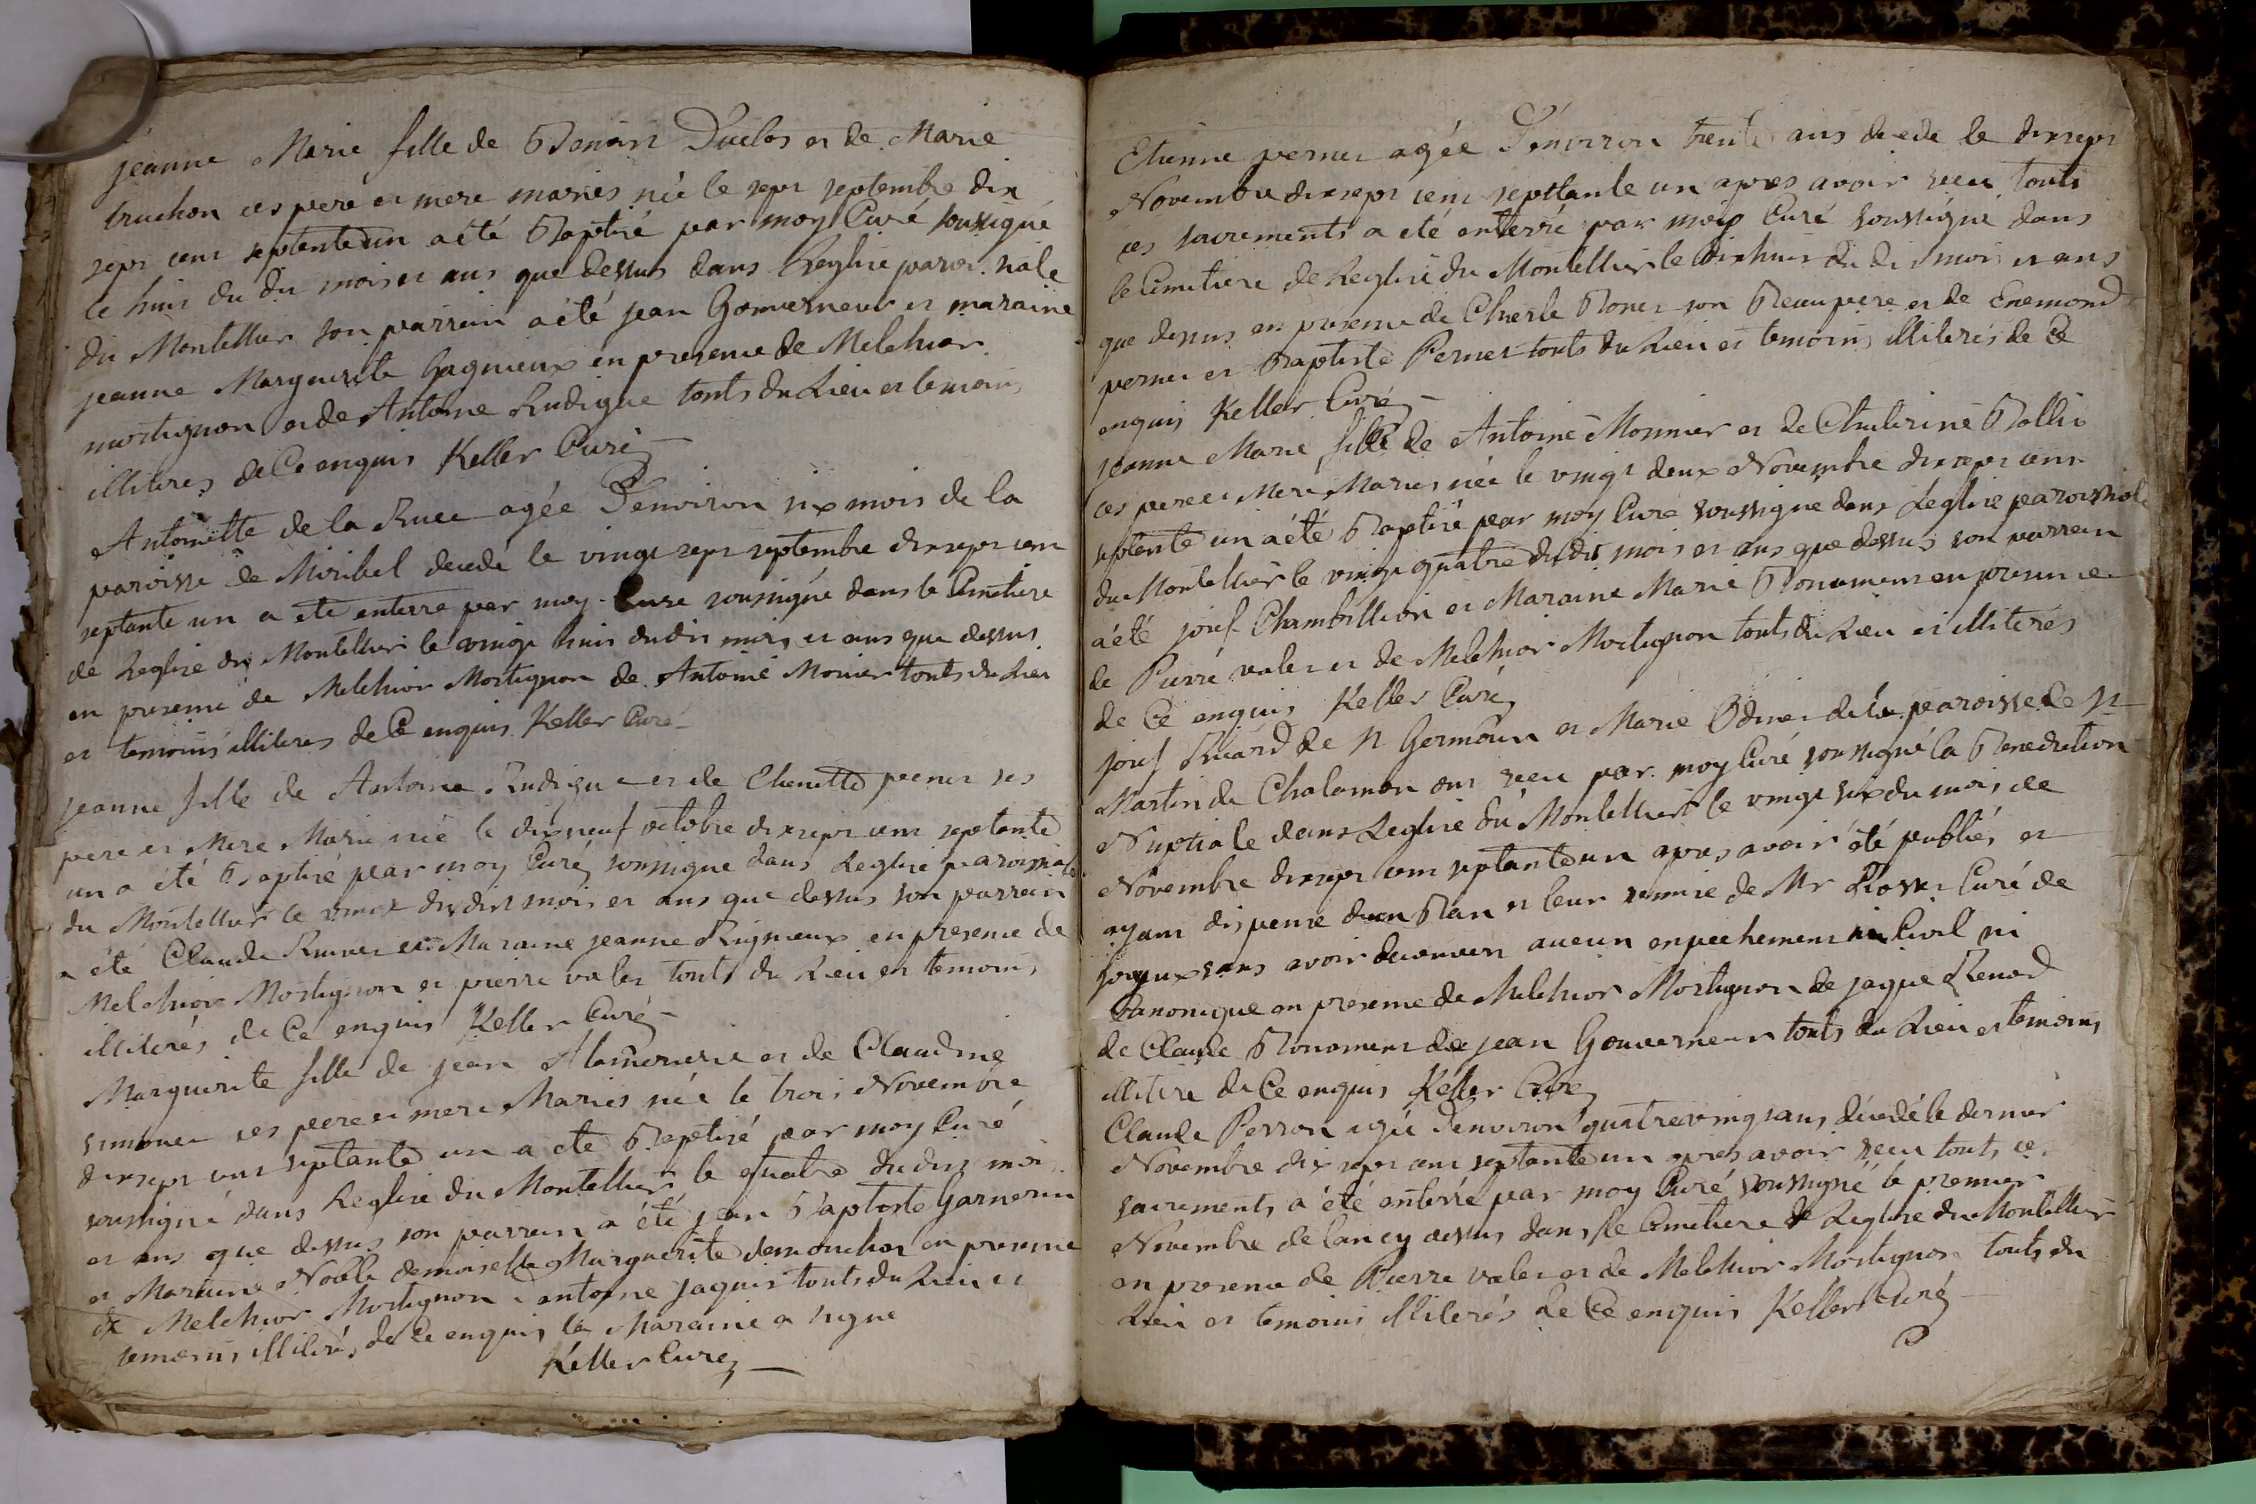 jeanne Marie fille de Benoist Duclos et de Marie
truchon ces pere et mere maries née le sept septembre dix
sept cent septente un a été Baptisé par moy Curé soussigné
le huit du dit mois et ans que dessus dans Leglise paroissiale
du Montellier son parrain a été jean Gouverneur et maraine
jeanne Marguerite Gagnieux en presence de Melchior
mortignon et de Antoine Rudigue touts du Lieu et temoins
illiterés de Ce enquis Keller Curé
Antoinette de la Ruee agée D'environ six mois de la
paroisse de Miribel decedé le vingt sept septembre dix sept cent
septante un a eté enterré par moy Curé soussigné dans le Cimetiere
de Leglise du Montellier le vingt huit dudit mois et ans que dessus
en presence de Melchior Mortignon de Antoine Monier touts du Lieu
et temoins illiteres de Ce enquis Keller Curé
jeanne fille de Antoine Rudigue et de Etienette pernet ses
pere et Mere Marie née le dix neuf octobre dix sept cent septante
un a été Baptisé par moy Curé soussigné dans Leglise paroissiale
du Montellier le vingt dudit mois et ans que dessus son parrain
a été Claude et Maraine jeanne Rignieux en presence de
Melchior Mortignon et pierre valet touts du Lieu et temoins
illiterés de Ce enquis Keller Curé
Marguerite fille de jean et de Claudine
simonet ces pere et mere Maries née le trois Novembre
dix sept cent septante un a eté Baptisé par moy Curé
soussigné dans Leglise du Montellier le quatre dudit mois
et ans que dessus son parrain a été jean Baptiste Garnerin
et Maraine Noble demoiselle Marguerite demouchon en presence
de Melchior Mortignon antoine jaquet touts du Lieu et
temoins illiterés de Ce enquis la Maraine a signé
Keller Curé
Etienne pernet agée D'environ trente ans decede le dix sept
Novembre dix sept cent septtante un apres avoir recu touts
ces sacrements a eté enterré par moy Curé soussigné dans
le Cimetiere de Leglise du Montellier le dix huit du dit mois et ans
que dessus en presence de Cherle Bonet son Beaupere et de Enemond
pernet et Baptiste Pernet touts du Lieu et temoins illiterés de Ce
enquis Keller Curé
jeanne Marie fille de Antoine Monnier et de Chaterine Bollie
ces pere et Mere Maries née le vingt deux Novembre dix sept cent
septente un a été Baptisé par moy Curé soussigné dans Leglise paroissiale
du Montellier le vingt quatre dudit mois et ans que dessus son parrain
a été josef Chambillion et Maraine Marie Bonament en presence
de Pierre valet et de Melchior Mortignon touts du Lieu et illiterés
de Ce enquis Keller Curé
josef Ruard de St Germain et Marie Odinet de la paroisse de St
Martin de Chalamon ont recu par moy Curé soussigné la Benediction
Nuptiale dans Leglise du Montellier le vingt six du mois de
Novembre dix sept cent septante un apres avoir été publiés et
ayant dispense d'un Ban et leur remise de Mr Curé de
joyeux sans avoir decouvert aucun enpechement ni Civil ni
Canonique en presence de Melchior Mortignon de jaque Renard
de Claude Bonament de jean Gouverneur touts du Lieu et temoins
illitere de Ce enquis Keller Curé
Claude Perron agée d'environ quatre vingt ans décedé le dernier
Novembre dix sept cent septante un apres avoir recu touts ces
sacrements a été enterré par moy Curé soussigné le premier
Novembre de lan cy dessus dans le Cimetiere de Leglise du Montellier
en presence de Pierre valet et de Melchior Mortignon touts du
Lieu et temoins illiterés de Ce enquis Keller Curé